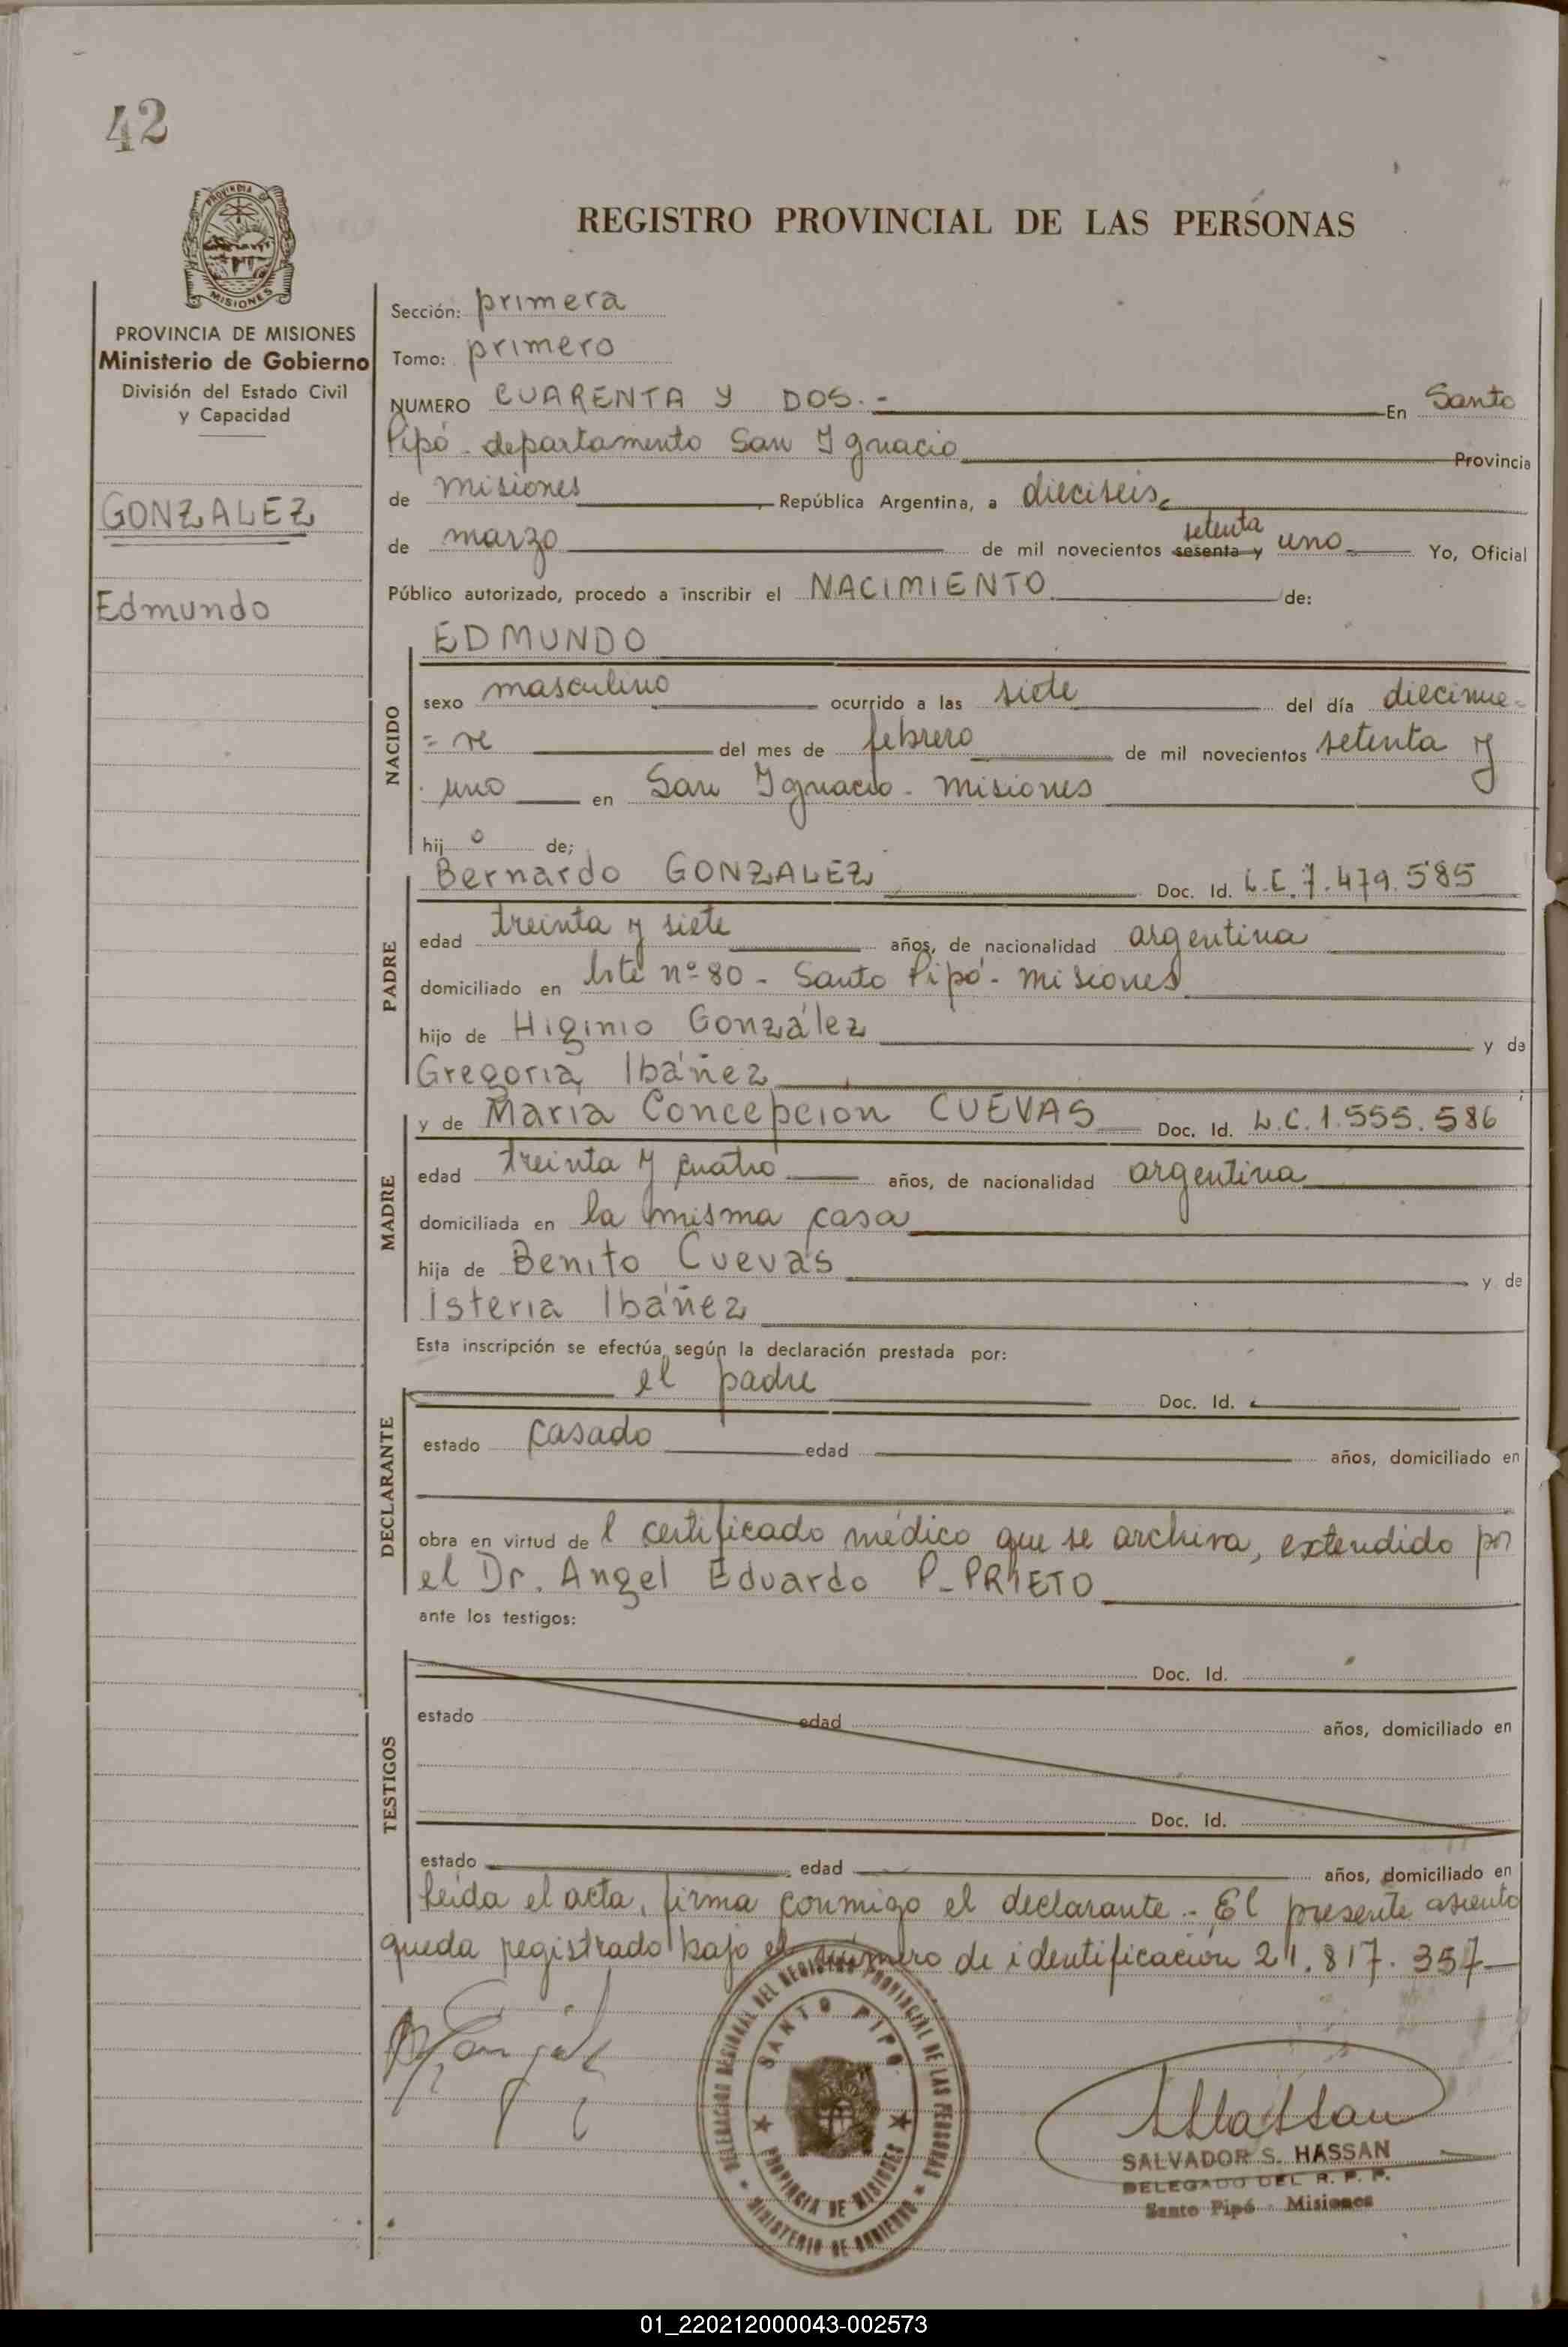 42
PROVINCIA DE MISIONES
PROVINCIA DE MISIONES
Ministerio de Gobierno
División del Estado Civil
y Capacidad
GONZALEZ
Edmundo
REGISTRO PROVINCIAL DE LAS PERSONAS
Sección: primera
Tomo: primero
NUMERO CUARENTA Y DOS.- En Santo
Pipó - departamento San Ignacio Provincia
de Misiones, República Argentina, a dieciseis
de marzo de mil novecientos sesenta y setenta uno Yo, Oficial
Público autorizado, procedo a inscribir el NACIMIENTO de:
NACIDO
EDMUNDO
sexo masculino ocurrido a las siete del día diecinue=
=ve del mes de febrero de mil novecientos setenta y
uno en San Ignacio - Misiones
hijo de;
PADRE
Bernardo GONZALEZ Doc. Id. L.E. 7.479.585
edad treinta y siete años, de nacionalidad argentina
domiciliado en lote nº 80 - Santo Pipó - Misiones
hijo de Higinio González y de
Gregoria Ibáñez
MADRE
y de María Concepción CUEVAS Doc. Id. L.C. 1.555.586
edad treinta y cuatro años, de nacionalidad argentina
domiciliada en la misma casa
hija de Benito Cuevas y de
Isteria Ibáñez
Esta inscripción se efectúa según la declaración prestada por:
DECLARANTE
el padre Doc. Id.
estado casado edad años, domiciliado en
obra en virtud del certificado médico que se archiva, extendido por
el Dr. Angel Eduardo P-PRIETO
ante los testigos:
TESTIGOS
Doc. Id.
estado edad años, domiciliado en
Doc. Id.
estado edad años, domiciliado en
Leída el acta, firma conmigo el declarante.- El presente asiento
queda registrado bajo el número de identificación 21.817.357
DELEGACION REGIONAL DEL REGISTRO PROVINCIAL DE LAS PERSONAS
SANTO PIPO
PROVINCIA DE MISIONES
MINISTERIO DE GOBIERNO
SALVADOR S. HASSAN
DELEGADO DEL R. P. P.
Santo Pipó - Misiones
01_220212000043-002573